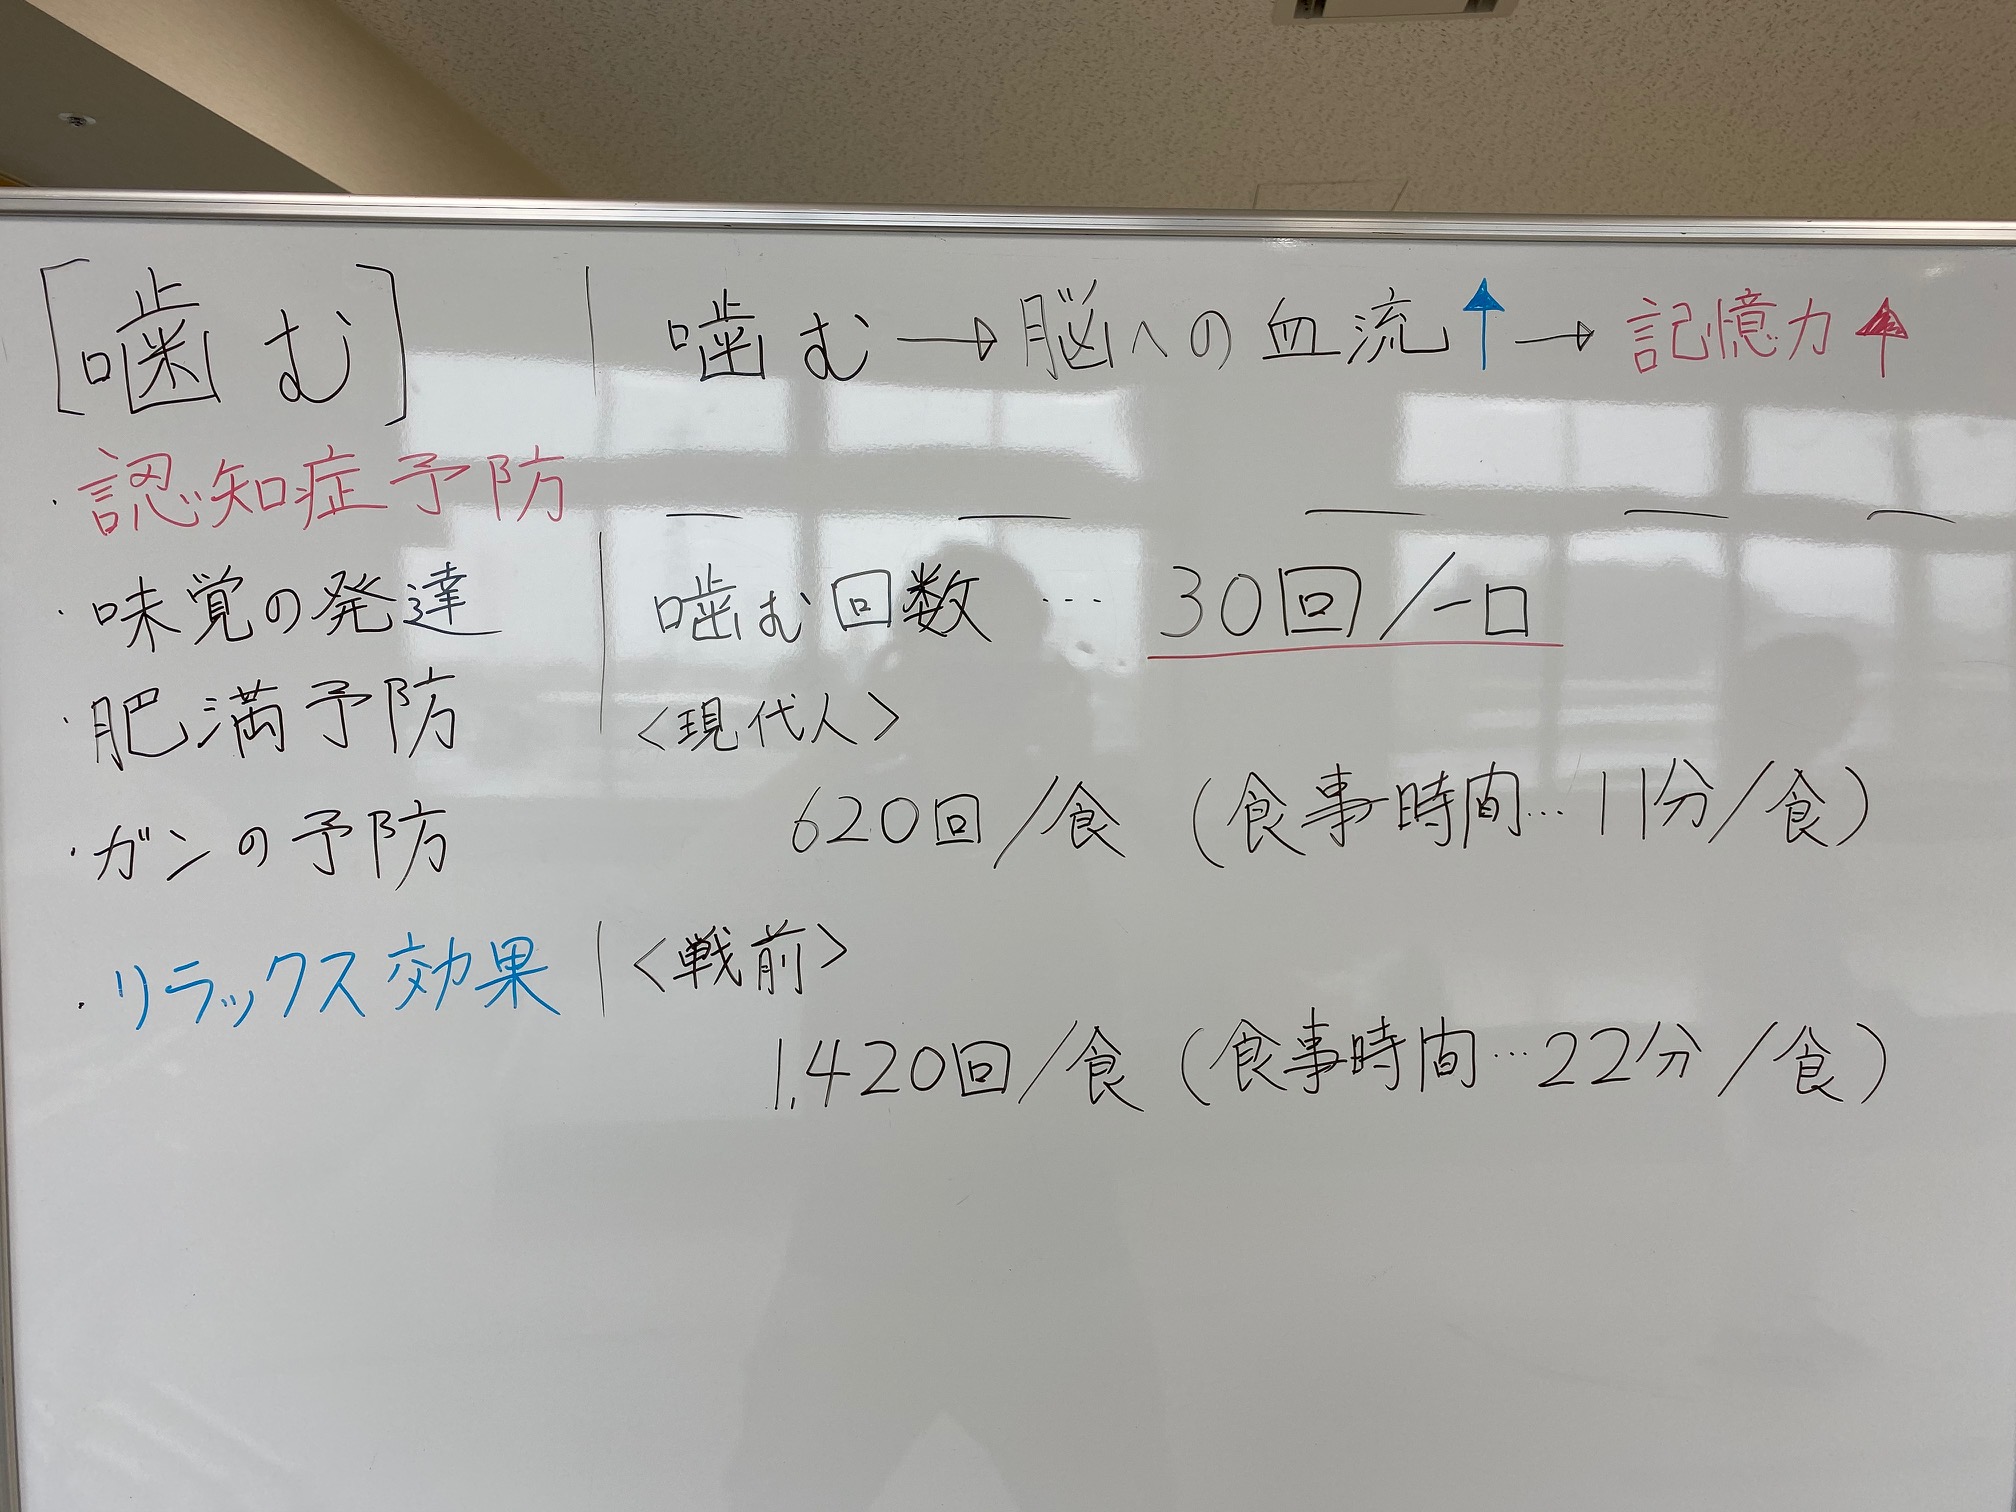 [噛む]
・認知症予防
・味覚の発達
・肥満予防
・ガンの予防
・リラックス効果
噛む→脳への血流↑→記憶力↑
噛む回数…30回/一口
<現代人>
620回/食(食事時間…11分/食)
<戦前>
1,420回/食(食事時間…22分/食)